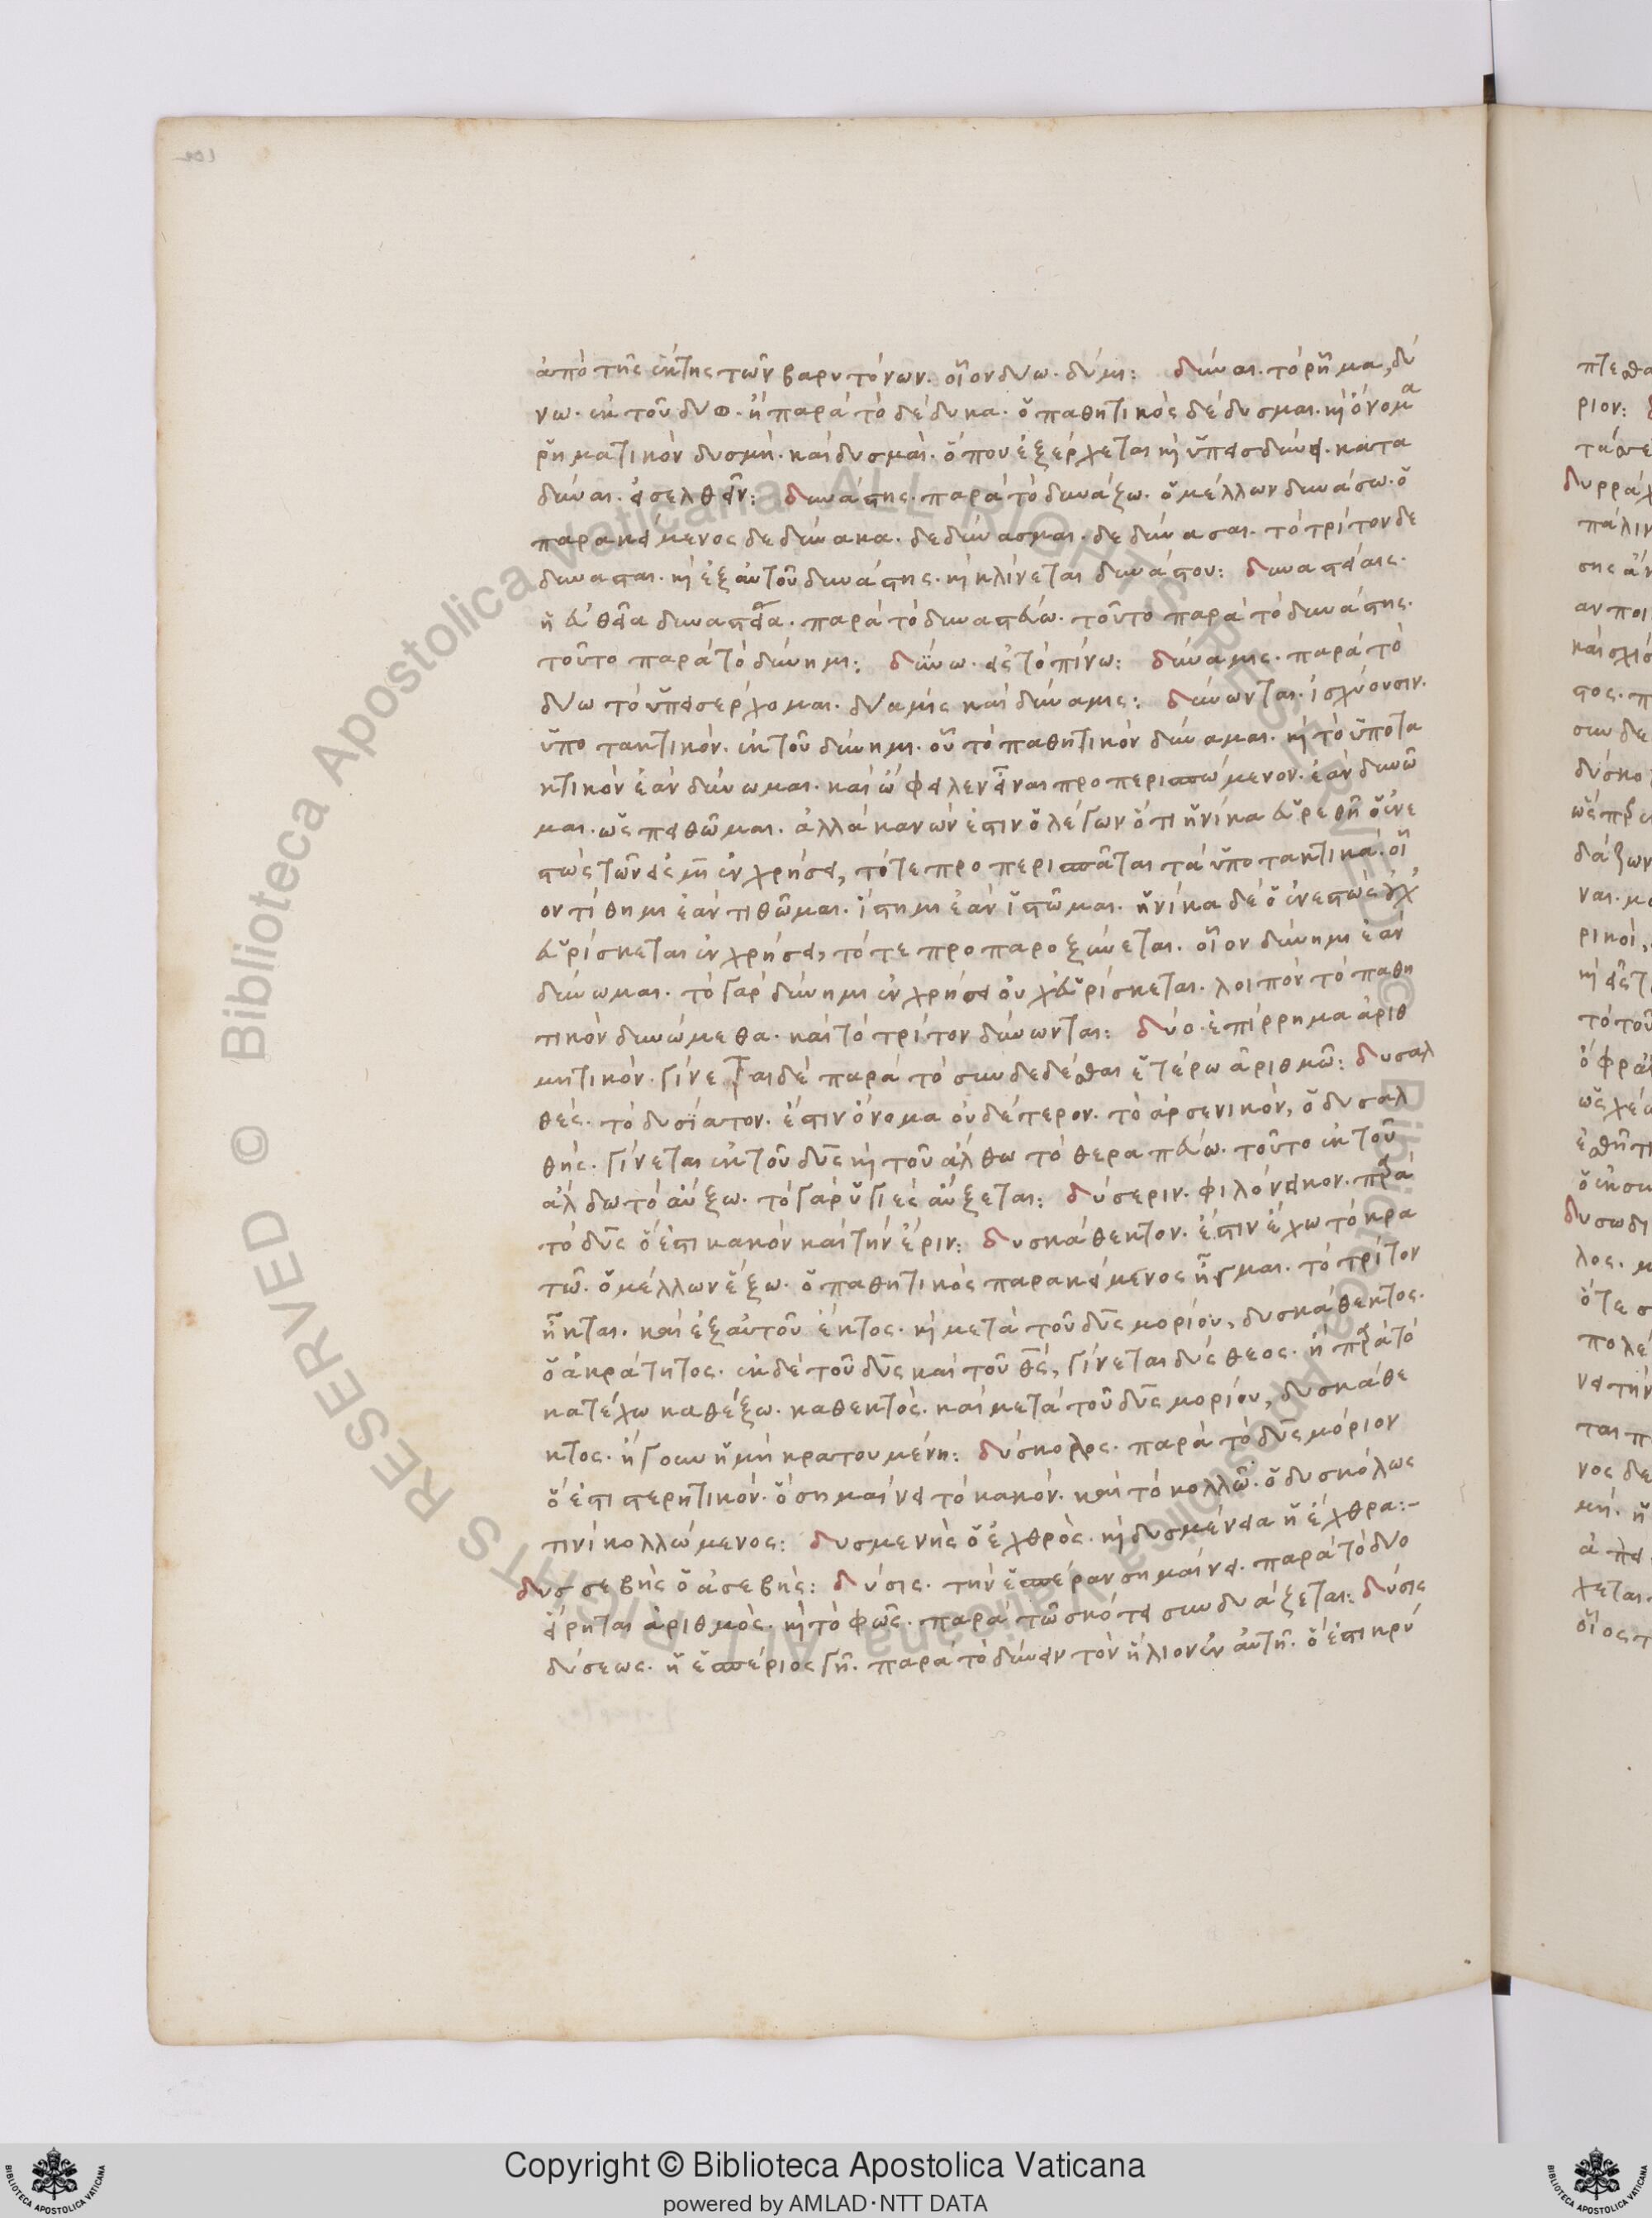 ἀπὸ τῆς ἕκτης τῶν βαρυτόνων. οἷον δύω. δύμι: δύναι. τὸ ῥῆμα, δύ
νω. ἐκ τοῦ δύω. ἢ παρὰ τὸ δέδυκα. ὁ παθητικὸς δέδυσμαι. κὶ ὄνομα
ῥηματικὸν δυσμὴ. καὶ δυσμαὶ. ὅπου ἐξέρχεται κὶ ὑπεισδύνει. κατα
δύναι. εἰσελθεῖν: δυνάστης. παρὰ τὸ δυνάζω. ὁ μέλλων δυνάσω. ὁ
παρακείμενος δεδύνακα. δεδύνασμαι. δεδύνασαι. τὸ τρίτον δε
δύνασται. κὶ ἐξ αὐτοῦ δυνάστης. κὶ κλίνεται δυνάστου: δυναστείαις.
ἡ εὐθεῖα δυναστεία. παρὰ τὸ δυναστεύω. τοῦτο παρὰ τὸ δυνάστης.
τοῦτο παρὰ τὸ δύνημι: δύνω. εἰς τὸ πίνω: δύναμις. παρὰ τὸ
δύω τὸ ὑπεισέρχομαι. δύαμις καὶ δύναμις: δύνωνται. ἰσχύουσιν.
ὑποτακτικὸν. ἐκ τοῦ δύνημι. οὗ τὸ παθητικὸν δύναμαι. κὶ τὸ ὑποτα
κτικὸν ἐὰν δύνωμαι. καὶ ὤφειλεν εἶναι προπερισπώμενον. ἐὰν δυνῶ
μαι. ὡς πειθῶμαι. ἀλλὰ κανών ἐστιν ὁ λέγων ὅτι ἡνίκα εὑρεθῆ ὁ ἐνε
στὼς τῶν εἰς μι ἐν χρήσει, τότε προπερισπᾶται τὰ ὑποτακτικά. οἷ
ον τίθημι ἐὰν τιθῶμαι. ἵστημι ἐὰν ἱστῶμαι. ἡνίκα δὲ ὁ ἐνεστὼς οὐχ
εὑρίσκεται ἐν χρήσει, τότε προπαροξύνεται. οἷον δύνημι ἐὰν
δύνωμαι. τὸ γὰρ δύνημι ἐν χρήσει οὐχ εὑρίσκεται. λοιπὸν τὸ παθη
τικὸν δυνώμεθα. καὶ τὸ τρίτον δύνωνται: δύο. ἐπίρρημα ἀριθ
μητικὸν. γίνεται δὲ παρὰ τὸ συνδεδέσθαι ἑτέρω ἀριθμῶ: δυσαλ
θές. τὸ δυσίατον. ἔστιν ὄνομα οὐδέτερον. τὸ ἀρσενικὸν, ὁ δυσαλ
θὴς. γίνεται ἐκ τοῦ δυς κὶ τοῦ ἄλθω τὸ θεραπεύω. τοῦτο ἐκ τοῦ
ἄλδω τὸ αὔξω. τὸ γὰρ ὑγιὲς αὔξεται: δύσεριν. φιλόνεικον. παρὰ
τὸ δυς ὅ ἐστι κακὸν καὶ τὴν ἔριν: δυσκάθεκτον. ἔστιν ἔχω τὸ κρα
τῶ. ὁ μέλλων ἕξω. ὁ παθητικὸς παρακείμενος ἧγμαι. τὸ τρίτον
ἧκται. καὶ ἐξ αὐτοῦ ἑκτὸς. κὶ μετὰ τοῦ δυς μορίου, δυσκάθεκτος.
ὁ ἀκράτητος. ἐκ δὲ τοῦ δυς καὶ τοῦ θές, γίνεται δύσθεος. ἢ παρὰ τὸ
κατέχω καθέξω. καθεκτὸς. καὶ μετὰ τοῦ δυς μορίου, δυσκάθε
κτος. ἤγουν ἡ μὴ κρατουμένη: δύσκολος. παρὰ τὸ δυς μόριον
ὅ ἐστι στερητικὸν. ὃ σημαίνει τὸ κακὸν. καὶ τὸ κολλῶ. ὁ δυσκόλως
τινὶ κολλώμενος: δυσμενὴς ὁ ἐχθρὸς. κὶ δυσμένεια ἡ ἔχθρα:-
δυσσεβὴς ὁ ἀσεβὴς: δύσις. τὴν ἑσπέραν σημαίνει. παρὰ τὸ δύο
εἴρηται ἀριθμὸς. κὶ τὸ φῶς. παρὰ τῶ σκότει συνδυάζεται: δύσις
δύσεως. ἡ ἑσπέριος γῆ. παρὰ τὸ δύνειν τὸν ἥλιον ἐν αὐτῆ. ὅ ἐστι κρύ
Copyright © Biblioteca Apostolica Vaticana
powered by AMLAD·NTT DATA